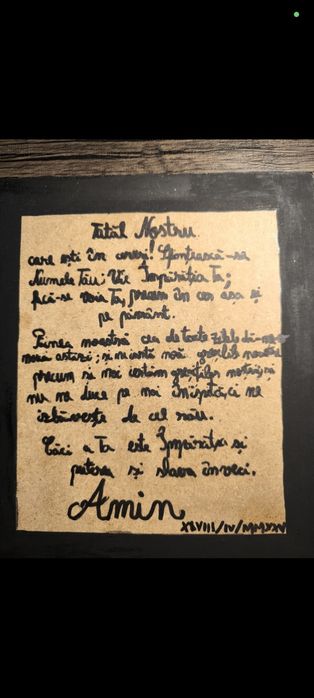 Tatăl Nostru
care ești în ceruri! Sfințească-se
Numele Tău; Vie Împărăția Ta;
facă-se voia Ta, precum în cer așa și
pe pământ.
Pâinea noastră cea de toate zilele dă-ne-o
nouă astăzi; și ne iartă nouă greșelile noastre
precum și noi iertăm greșiților noștri; și
nu ne duce pe noi în ispită, ci ne
izbăvește de cel rău.
Căci a Ta este Împărăția și
puterea și slava în veci.
Amin